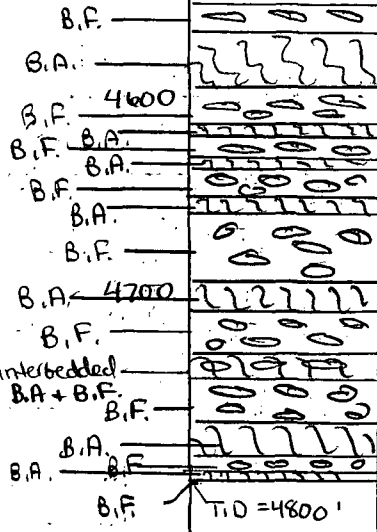 B.F.
B.A.
4600
B.F.
B.A.
B.F.
B.A.
B.F.
B.A.
B.F.
B.A. 4700
B.F.
interbedded
B.A + B.F.
B.F.
B.A.
B.A. B.F.
B.F. T.D = 4800'